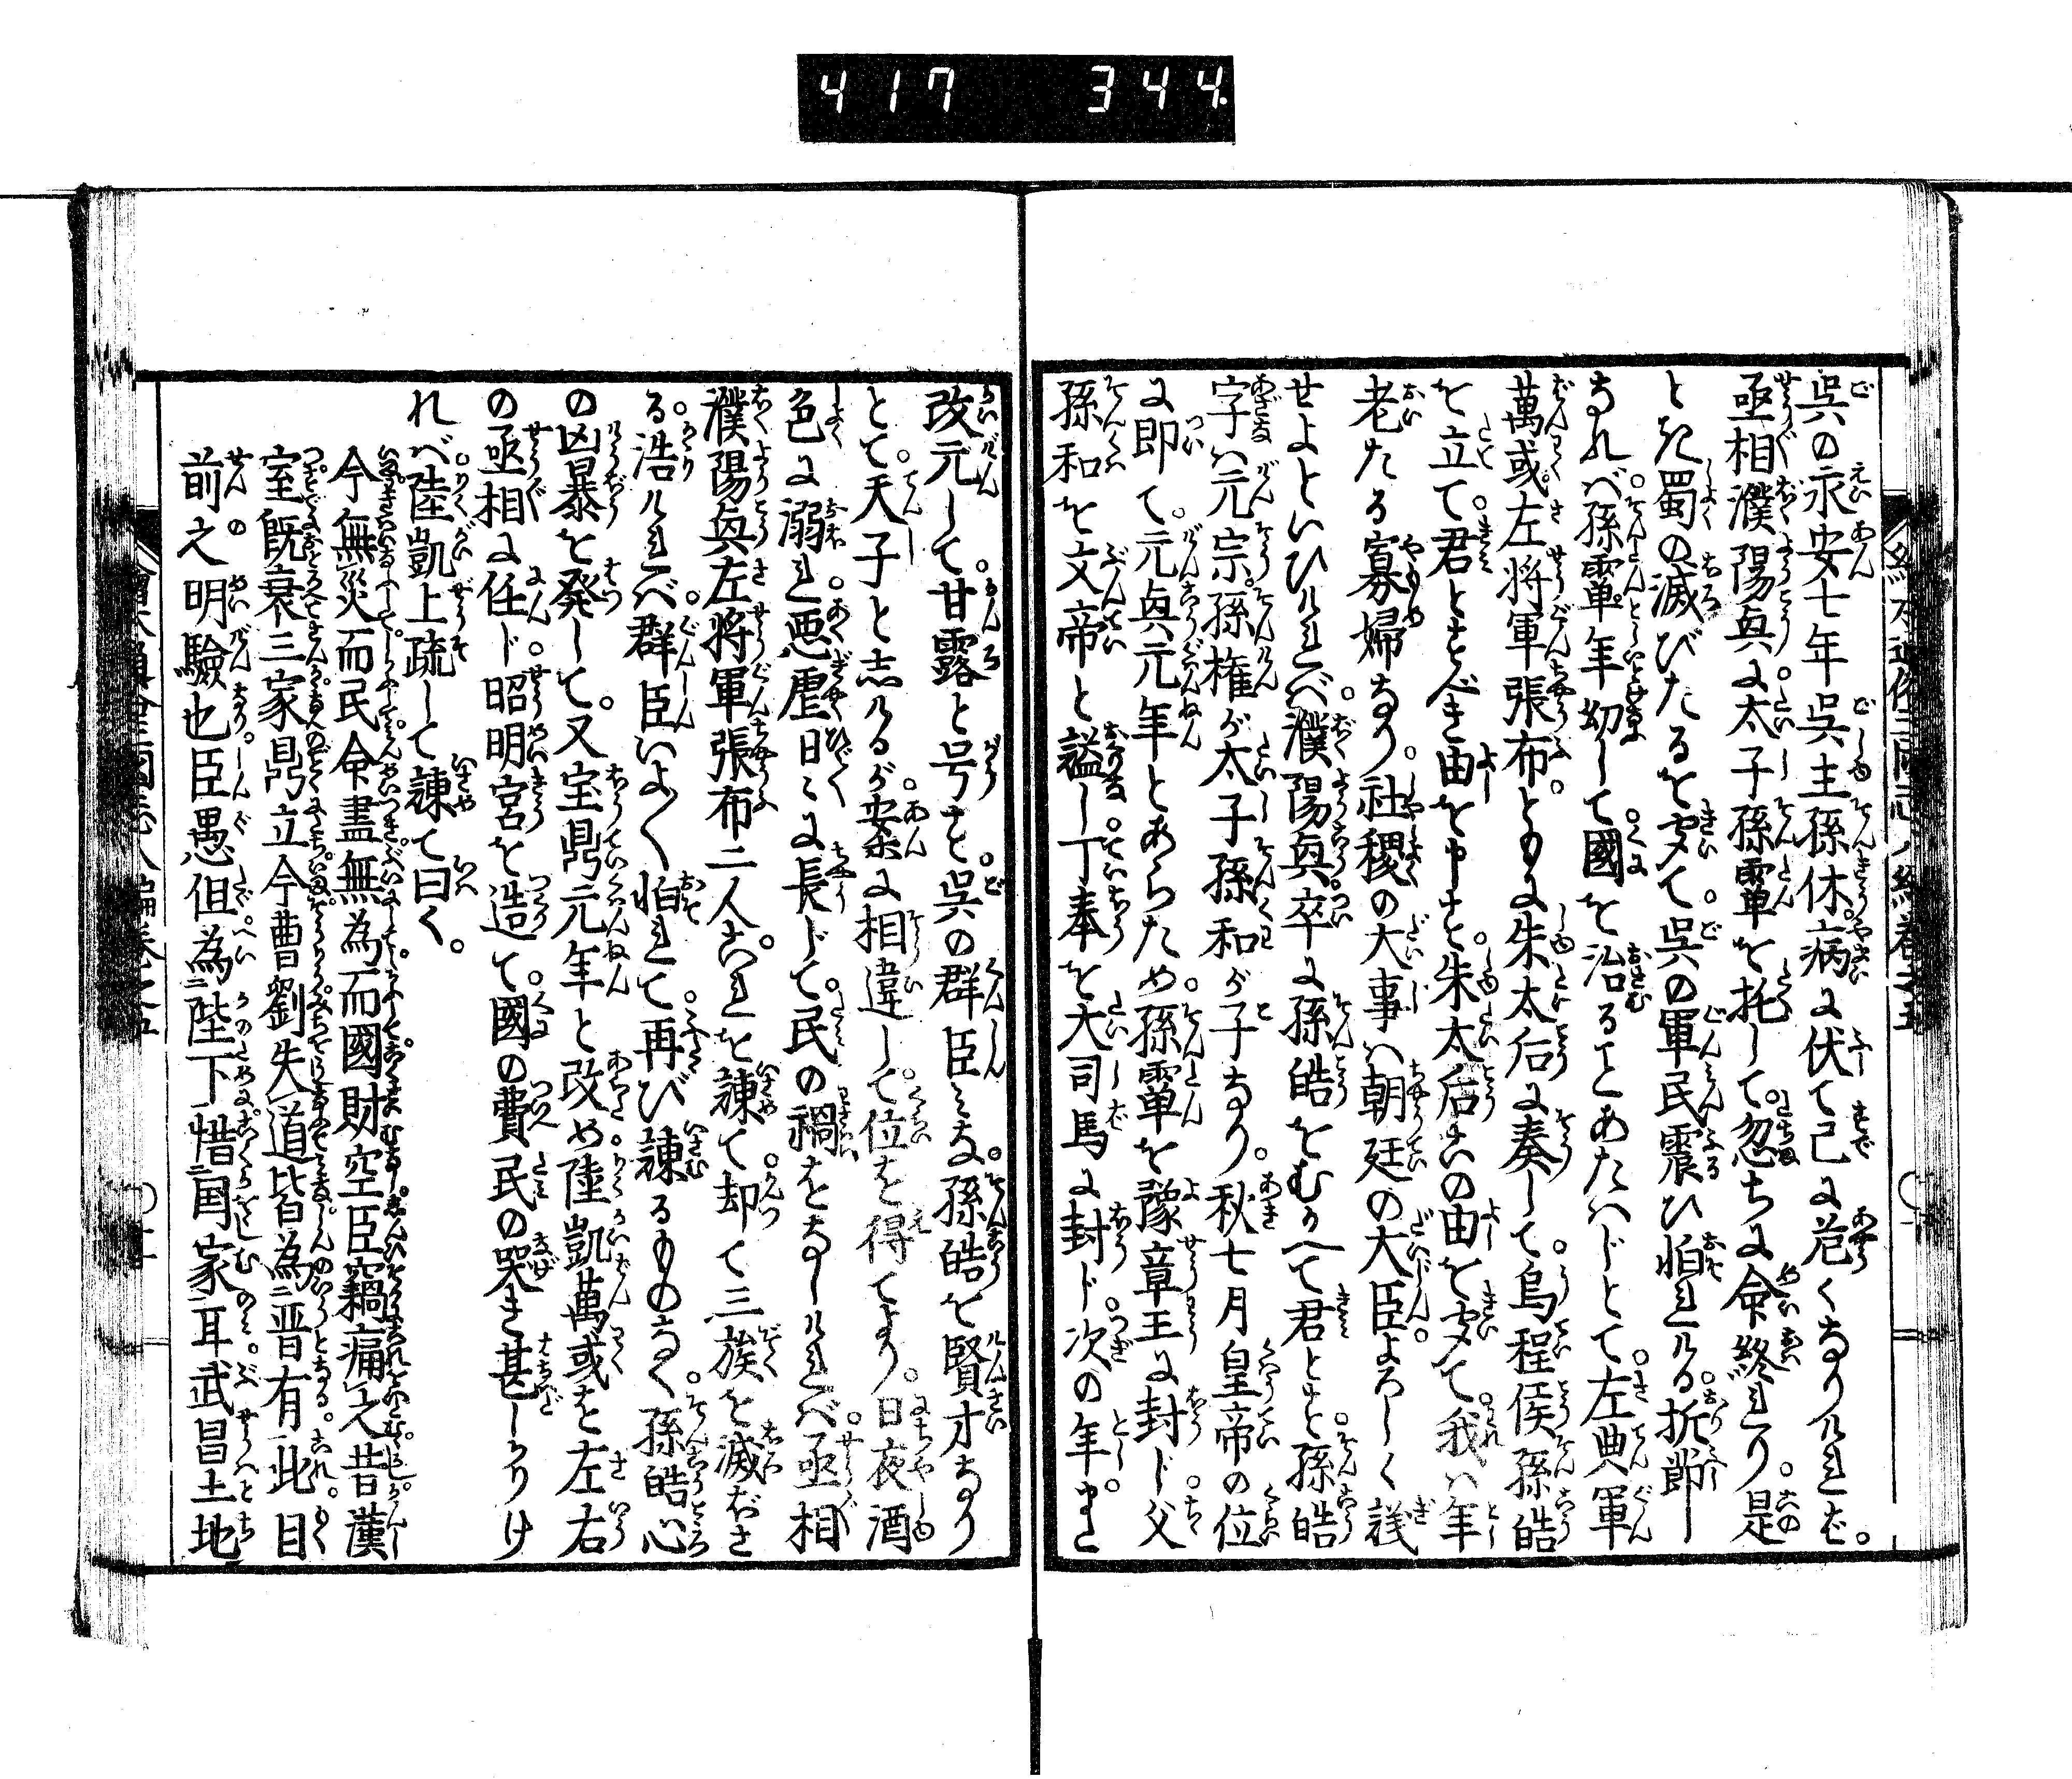 417 344
呉の永安七年呉主孫休病に伏て已に危くなりければ。
丞相濮陽興に太子孫𩅦を托して。忽ちに命終れり。是
とき蜀の滅びたるを聞て。呉の軍民震ひ怕れける折節
なれば孫𩅦年幼して國を治るヿあたはじとて左典軍
萬彧左将軍張布ともに朱太后に奏して。烏程侯孫皓
を立て君とすべき由を申す。朱太后この由を聞て。我ハ年
老たる寡婦なり。社稷の大事ハ朝廷の大臣よろしく議
せよといひければ。濮陽興卒に孫皓をむかへて君とす。孫皓
字ハ元宗。孫権が太子孫和が子なり。秋七月皇帝の位
に即て。元興元年とあらため。孫𩅦を豫章王に封じ。父
孫和を文帝と謚し丁奉を大司馬に封ド。次の年また
改元して甘露と号す。呉の群臣みな孫皓を賢才なり
とて。天子と志けるが。案に相違して位を得てより。日夜酒
色に溺れ。悪虐日〻に長じて。民の禍をなしければ。丞相
濮陽興左将軍張布二人これを諫て却て三族を滅ぼさ
る。浩ければ群臣いよ〱怕れて。再び諫るものなく。孫皓心
の凶暴を発して。又宝鼎元年と改め。陸凱萬彧を左右
の丞相に任ド。昭明宮を造て。國の費民の哭き甚しかりけ
れバ。陸凱上疏して諫て曰く。
今無災而民命盡無為而國財空臣竊痛之昔漢
室既衰三家鼎立今曹劉失道皆為晋有此目
前之明驗也臣愚但為陛下惜国家耳武昌土地